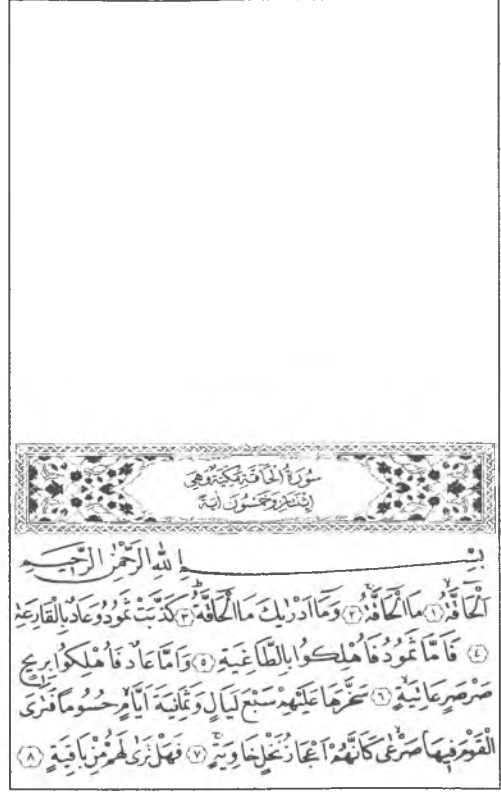 سُورَةُ الْحَاقَّةِ مَكِّيَّةٌ وَهِيَ
اِثْنَتَانِ وَخَمْسُونَ اٰيَةً
بِسْمِ اللّٰهِ الرَّحْمٰنِ الرَّحٖيمِ
اَلْحَاقَّةُۙ ﴿١﴾ مَا الْحَاقَّةُۚ ﴿٢﴾ وَمَٓا اَدْرٰيكَ مَا الْحَاقَّةُۜ ﴿٣﴾ كَذَّبَتْ ثَمُودُ وَعَادٌ بِالْقَارِعَةِ
﴿٤﴾ فَاَمَّا ثَمُودُ فَاُهْلِكُوا بِالطَّاغِيَةِ ﴿٥﴾ وَاَمَّا عَادٌ فَاُهْلِكُوا بِرٖيحٍ
صَرْصَرٍ عَاتِيَةٍۙ ﴿٦﴾ سَخَّرَهَا عَلَيْهِمْ سَبْعَ لَيَالٍ وَثَمَانِيَةَ اَيَّامٍۙ حُسُومًا فَتَرَى
الْقَوْمَ فٖيهَا صَرْعٰىۙ كَاَنَّهُمْ اَعْجَازُ نَخْلٍ خَاوِيَةٍۚ ﴿٧﴾ فَهَلْ تَرٰى لَهُمْ مِنْ بَاقِيَةٍ ﴿٨﴾